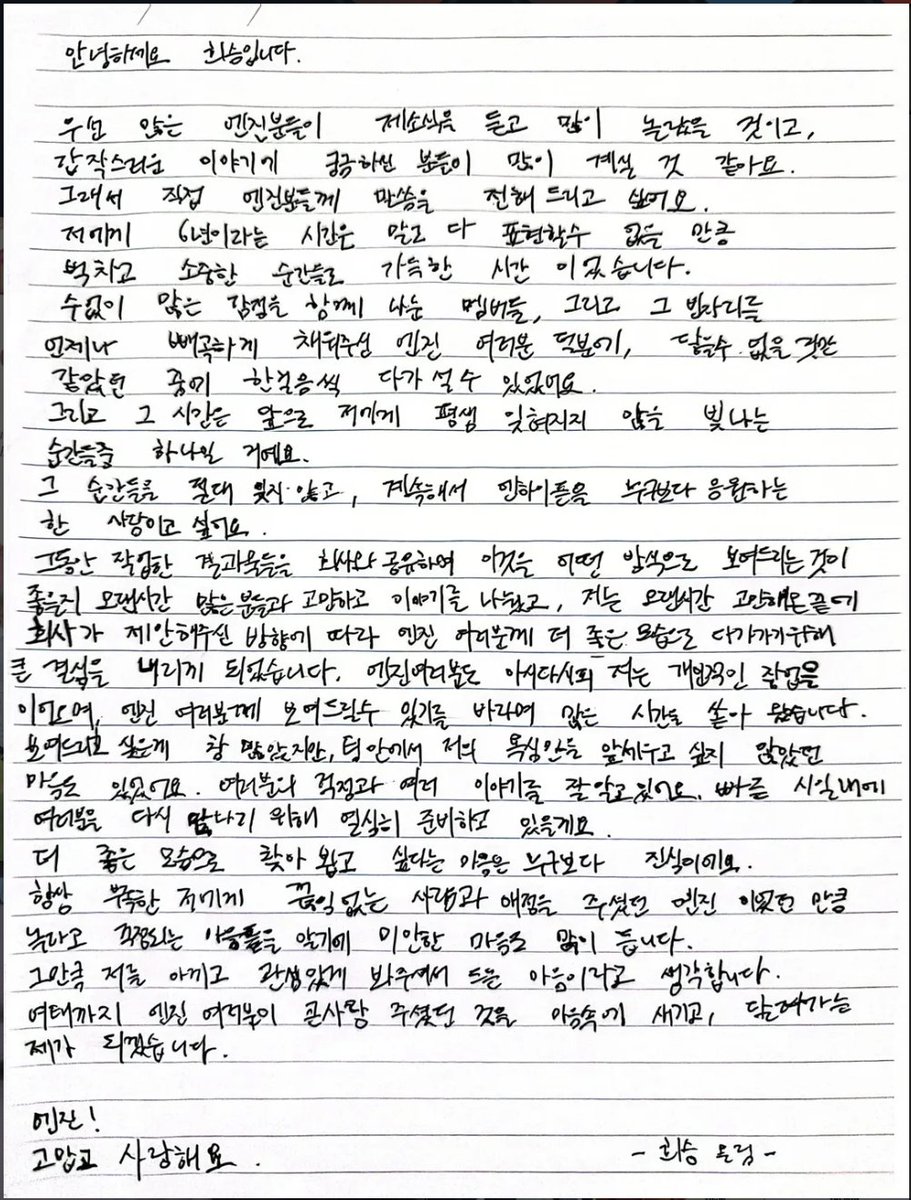 안녕하세요 희승입니다.
우선 많은 엔진분들이 제소식을 듣고 많이 놀랐을 것이고,
갑작스러운 이야기에 궁금하신 분들이 많이 계실 것 같아요.
그래서 직접 엔진분들께 말씀을 전해 드리고 싶어요.
저에게 6년이라는 시간은 말로 다 표현할수 없을 만큼
벅차고 소중한 순간들로 가득한 시간 이었습니다.
수없이 많은 감정을 함께 나눈 멤버들, 그리고 그 빈자리를
언제나 빼곡하게 채워주신 엔진 여러분 덕분에, 닿을수 없을 것만
같았던 꿈에 한걸음씩 다가 설 수 있었어요.
그리고 그 시간은 앞으로 저에게 평생 잊혀지지 않을 빛나는
순간들중 하나일 거예요.
그 순간들을 절대 잊지 않고, 계속해서 엔하이픈을 누구보다 응원하는
한 사람이고 싶어요.
그동안 작업한 결과물들을 회사와 공유하여 이것을 어떤 방식으로 보여드리는것이
좋을지 오랜시간 많은 분들과 고민하고 이야기를 나눴고, 저는 오랜시간 고민해온 끝에
회사가 제안해주신 방향에 따라 엔진 여러분께 더 좋은 모습으로 다가가기위해
큰 결심을 내리게 되었습니다. 엔진여러분도 아시다시피 저는 개인적인 작업을
이어오며, 엔진 여러분께 보여드릴수 있기를 바라며 많은 시간을 쏟아 왔습니다.
보여드리고 싶은게 참 많았지만, 팀 안에서 저의 욕심만을 앞세우고 싶지 않았던
마음도 있었어요. 여러분의 걱정과 여러 이야기를 잘 알고 있어요. 빠른 시일내에
여러분을 다시 만나기 위해 열심히 준비하고 있을게요.
더 좋은 모습으로 찾아 뵙고 싶다는 마음은 누구보다 진심이에요.
항상 부족한 저에게 끊임없는 사랑과 애정을 주셨던 엔진 이었던 만큼
놀라고 걱정되는 마음들을 알기에 미안한 마음도 많이 듭니다.
그만큼 저를 아끼고 관심있게 봐주셔서 드는 마음이라고 생각합니다.
여태까지 엔진 여러분이 큰사랑 주셨던 것을 마음속에 새기고, 달려가는
제가 되겠습니다.
엔진!
고맙고 사랑해요.
- 희승 드림 -